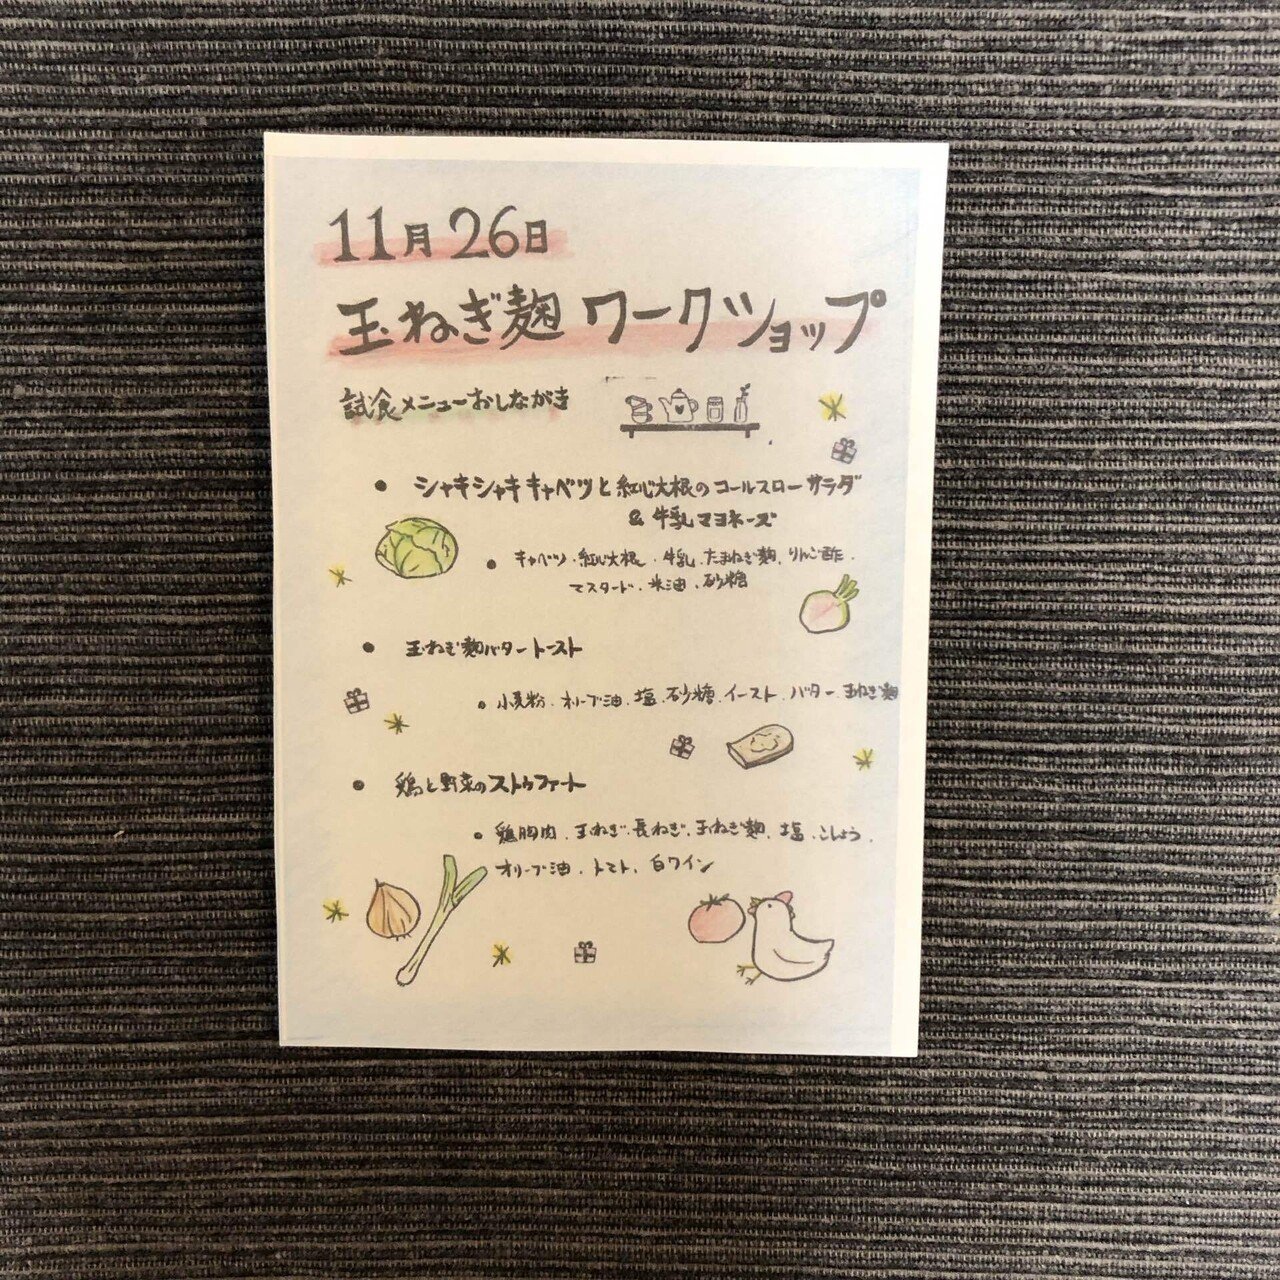 11月26日
玉ねぎ麹ワークショップ
試食メニューおしながき
• シャキシャキキャベツと紅心大根のコールスローサラダ
& 牛乳マヨネーズ
• キャベツ、紅心大根、牛乳、たまねぎ麹、りんご酢、
マスタード、米油、砂糖
• 玉ねぎ麹バタートースト
• 小麦粉、オリーブ油、塩、砂糖、イースト、バター、玉ねぎ麹
• 鶏と野菜のストゥファート
• 鶏胸肉、玉ねぎ、長ねぎ、玉ねぎ麹、塩、こしょう、
オリーブ油、トマト、白ワイン